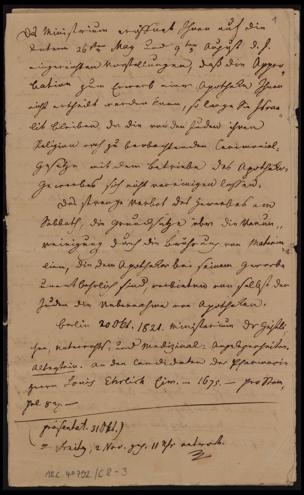 Das Ministerium eröffnet Ihnen auf die
unterm 26ten May und 9ten August d. J.
eingereichten Vorstellungen, daß die Appro-
bation zum Erwerb einer Apotheke Ihnen
nicht ertheilt werden kann, so lange Sie Israe-
lit bleiben, da die von den Juden ihrer
Religion nach zu beobachtenden Ceremonial-
Gesetze mit dem Betriebe des Apotheker-
Gewerbes sich nicht vereinigen lassen.
Das strenge Verbot des Gewerbes am
Sabbath, die Grundsätze über die Verun-
reinigung durch die Berührung von Materia-
lien, die dem Apotheker bei seinem Gewerbe
unentbehrlich sind, verbieten von selbst den
Juden die Uebernahme von Apotheken.
Berlin 20 Okt. 1821. Ministerium der Geistli-
chen, Unterrichts- und Medizinal-Angelegenheiten.
Altenstein. An den Candidaten der Pharmacie
Herrn Louis Ehrlich — 1675. —
(präsentat. 31 Okt.)
Freitag, 2 Nov. 11 Uhr